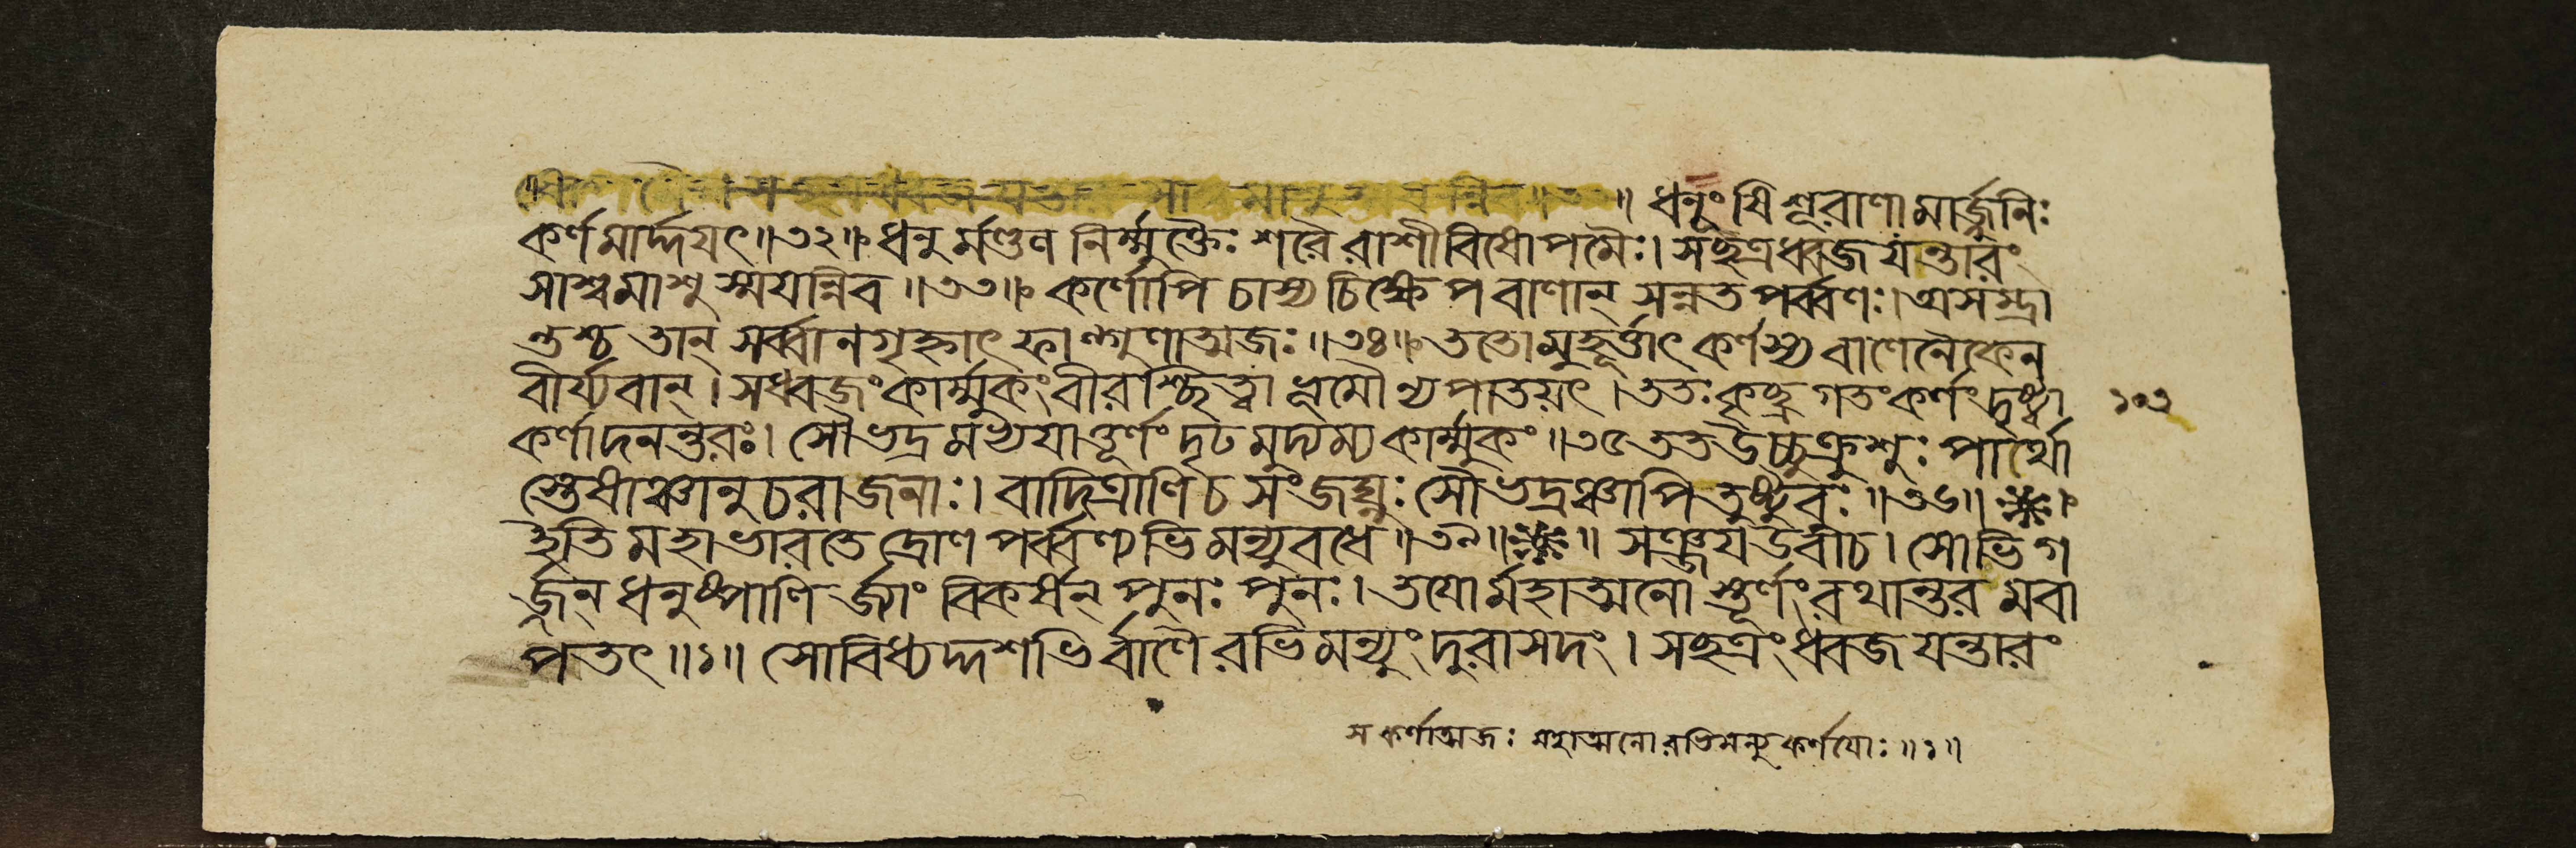 ॥ ধনূংষি শূরাণামার্জ্জুনিঃ
কর্ণমার্দ্দযৎ॥৩২॥ ধনুর্মণ্ডল নির্ম্মুক্তৈঃ শরৈরাশীবিষোপমৈঃ। সচ্ছত্রধ্বজযন্তারং
সাশ্বমাশু স্মযন্নিব॥৩৩॥ কর্ণোপি চাস্য চিক্ষেপ বাণান্ সন্নতপর্ব্বণঃ। অসম্ভ্রা
ন্তশ্চ তান্ সর্ব্বানগৃহ্নাৎ ফাল্গুণাত্মজঃ॥৩৪॥ ততোমুহূর্ত্তাৎ কর্ণস্য বাণেনৈকেন
বীর্য্যবান্। সধ্বজং কার্ম্মুকং বীরশ্ছিত্ত্বা ভূমৌ ন্যপাতয়ৎ। ততঃ কৃচ্ছ্রগতং কর্ণং দৃষ্ট্বা
১০৩
কর্ণাদনন্তরঃ। সৌভদ্রমভ্যযাত্তূর্ণং দৃঢমুদ্যম্য কার্ম্মুকং॥৩৫ তত উচ্চুক্রুশুঃ পার্থা
স্তেষাঞ্চানুচরাজনাঃ। বাদিত্রাণি চ সংজঘ্নুঃ সৌভদ্রঞ্চাপি তুষ্টুবুঃ॥৩৬॥
ইতি মহাভারতে দ্রোণপর্ব্বণ্যভিমন্যুবধে॥৩৯॥ সঞ্জয উবাচ। সোভিগ
র্জ্জন্ ধনুষ্পাণির্জ্যাং বিকর্ষন্ পুনঃ পুনঃ। তযোর্মহাত্মনো স্তূর্ণং রথান্তরমবা
পতৎ॥১॥ সোবিধ্যদ্দশভির্বাণৈরভিমন্যুং দুরাসদং। সচ্ছত্রং ধ্বজযন্তারং
স কর্ণাত্মজঃ মহাত্মনোরভিমন্যুকর্ণযোঃ॥১॥